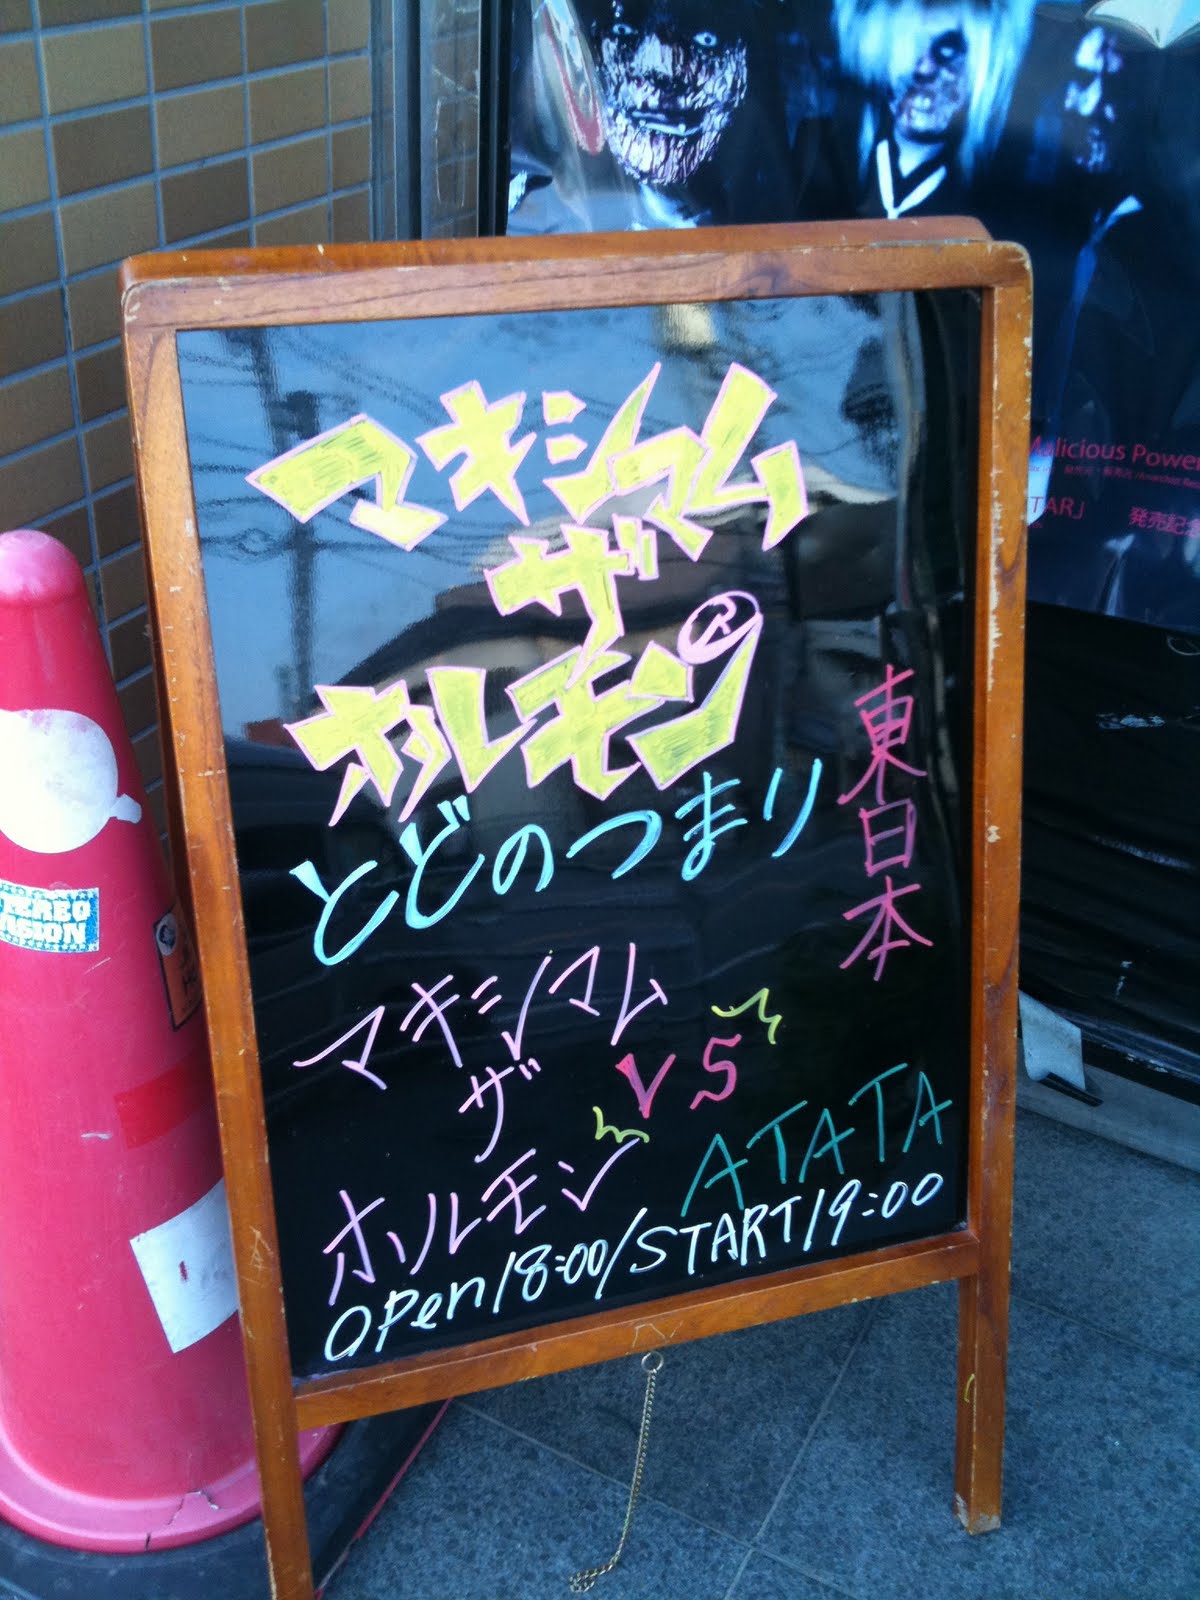 マキシマム
ザ
ホルモン®
とどのつまり
東日本
マキシマム
ザ
ホルモン
VS
ATATA
OPen/18:00/START/19:00
Malicious Power
TAR」 発売記念